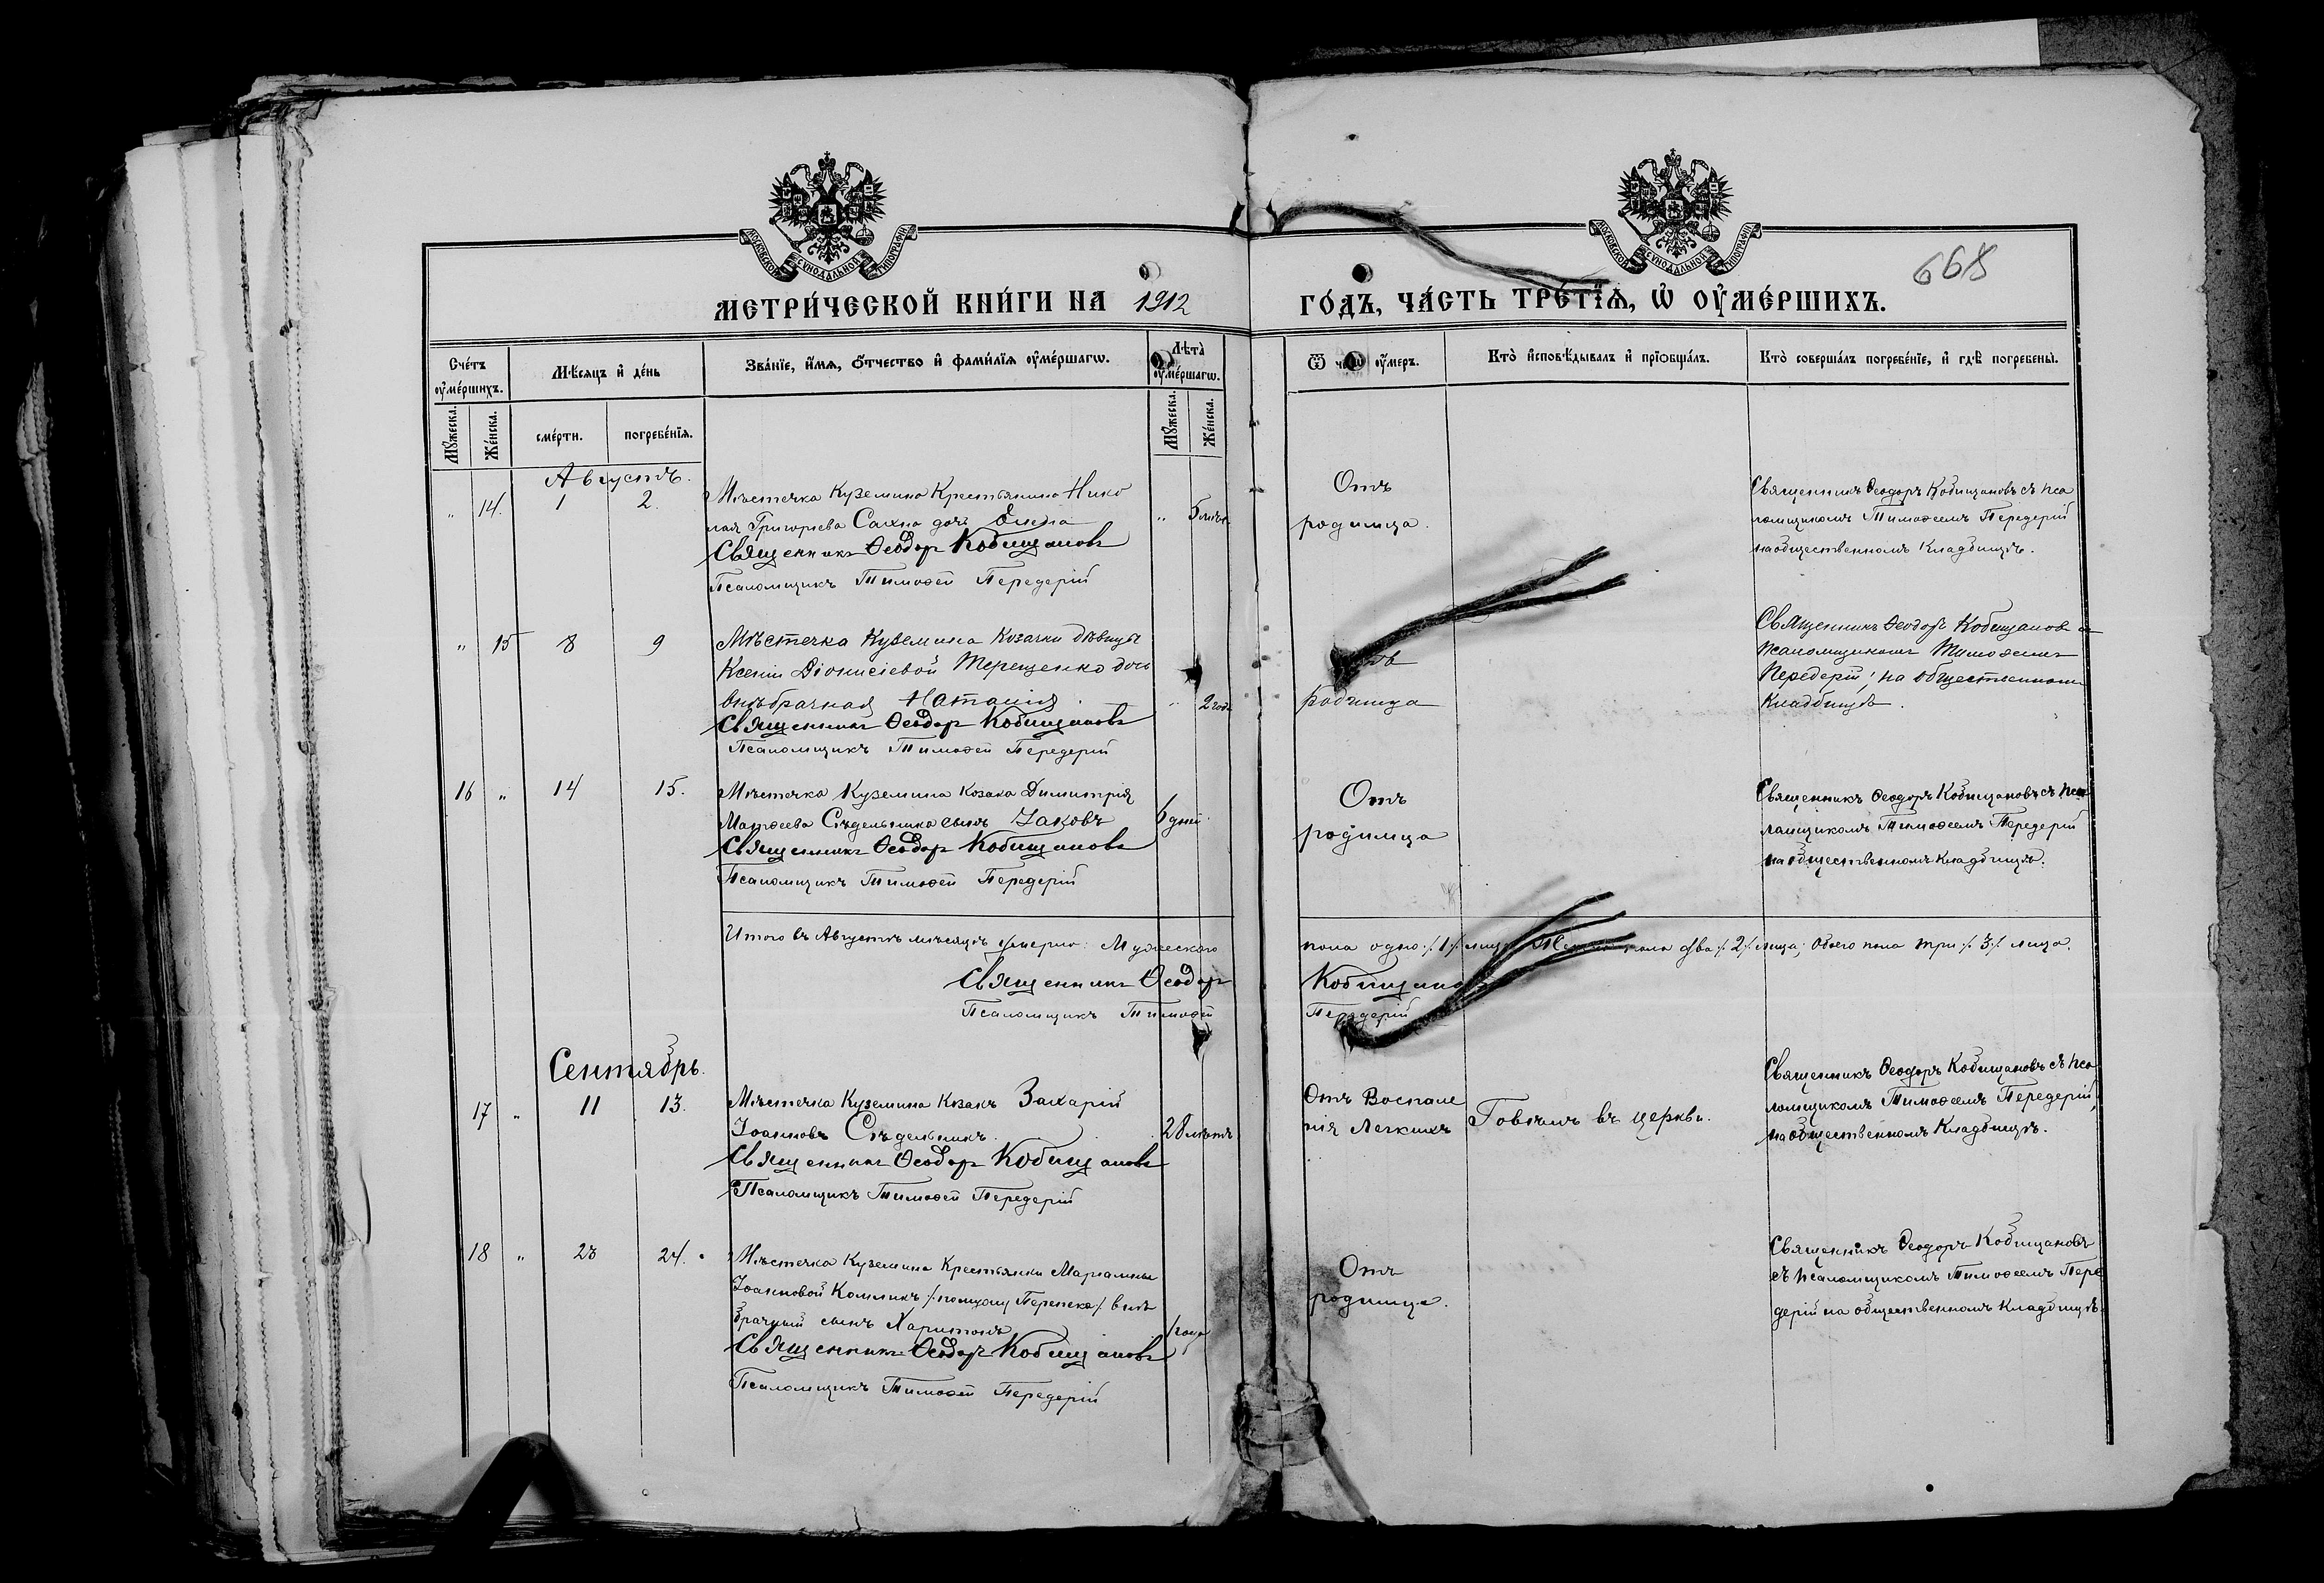 МОСКОВСКОЙ СѴНОДАЛЬНОЙ ТИПОГРАФІИ
МОСКОВСКОЙ СѴНОДАЛЬНОЙ ТИПОГРАФІИ
668
МЕТРИ́ЧЕСКОЙ КНИ́ГИ НА 1912 ГО́ДЪ, ЧА́СТЬ ТРЕ́ТІѦ, Ѡ҆ ОУ҆МЕ́РШИХЪ.
Сче́тъ оу҆ме́ршихъ.
Мѣ́сяцъ и҆ де́нь
Зва́нїе, и҆́мѧ, ѻ҆́тчество и҆ фами́лїѧ оу҆ме́ршагѡ.
Лѣ́та оу҆ме́ршагѡ.
Ѿ чегѡ̀ оу҆́меръ.
Кто̀ и҆сповѣ́дывалъ и҆ прїѡбща́лъ.
Кто̀ соверша́лъ погребе́нїе, и҆ гдѣ̀ погребены̀.
Мꙋ́жеска.
Же́нска.
сме́рти.
погребе́нїѧ.
Мꙋ́жеска.
Же́нска.
Августъ.
" 14. 1 2. Мѣстечка Куземина Крестьянина Нико
лая Григорьева Сахна дочь " 5 мѣс.
Священникъ Ѳеодоръ Кобищановъ
Псаломщикъ Тимоѳей Передерій
Отъ
родимца.
Священникъ Ѳеодоръ Кобищановъ съ пса
ломщикомъ Тимоѳеемъ Передерій
на общественномъ кладбищѣ.
" 15 8 9 Мѣстечка Куземина Козачки дѣвицы
Ксеніи Діонисіевой Терещенко дочь
внѣбрачная Наталія " 2 года
Священникъ Ѳеодоръ Кобищановъ
Псаломщикъ Тимоѳей Передерій
родимца
Священникъ Ѳеодоръ Кобищановъ с
псаломщикомъ Тимоѳеемъ
Передерій; на общественномъ
кладбищѣ.
16 " 14 15. Мѣстечка Куземина Козака Димитрія
Матѳеева Сѣдельника сынъ Іаковъ 6 дней
Священникъ Ѳеодоръ Кобищановъ
Псаломщикъ Тимоѳей Передерій
Отъ
родимца
Священникъ Ѳеодоръ Кобищановъ съ пса
ломщикомъ Тимоѳеемъ Передерій
на общественномъ кладбищѣ.
Итого въ Августѣ мѣсяцѣ умерло: Мужескаго пола одно /.1/. лице два /.2/. лица; Обоего пола три /.3/. лица.
Священникъ Ѳеодоръ Кобищано
Псаломщикъ Тимоѳей Передерій
Сентябрь.
17 " 11 13. Мѣстечка Куземина Козакъ Захарій
Іоанновъ Сѣдельникъ. 28 лѣтъ
Священникъ Ѳеодоръ Кобищановъ
Псаломщикъ Тимоѳей Передерій
Отъ Воспале
нія Легкихъ
Говѣлъ въ церкви.
Священникъ Ѳеодоръ Кобищановъ съ пса
ломщикомъ Тимоѳеемъ Передерій,
на общественномъ кладбищѣ.
18 " 23 24. Мѣстечка Куземина Крестьянки Маріамны
Іоанновой /. Перепека /. внѣ
брачный сынъ Харитонъ 1 года
Священникъ Ѳеодоръ Кобищановъ
Псаломщикъ Тимоѳей Передерій
Отъ
родимца.
Священникъ Ѳеодоръ Кобищановъ
съ псаломщикомъ Тимоѳеемъ Пере
дерій на общественномъ кладбищѣ.